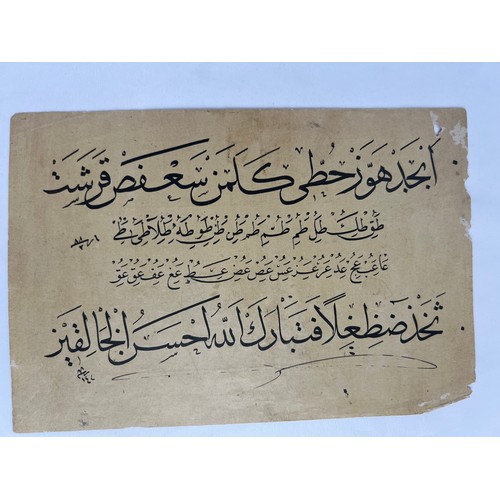 ابجد هوز حطي كلمن سعفص قرشت
طق طك طل طم طم طن طو طه طلا طي
عا عب عج عد عر عز عس عص عط عع عف عق
ثخذ ضظغلا فتبارك الله احسن الخالقين